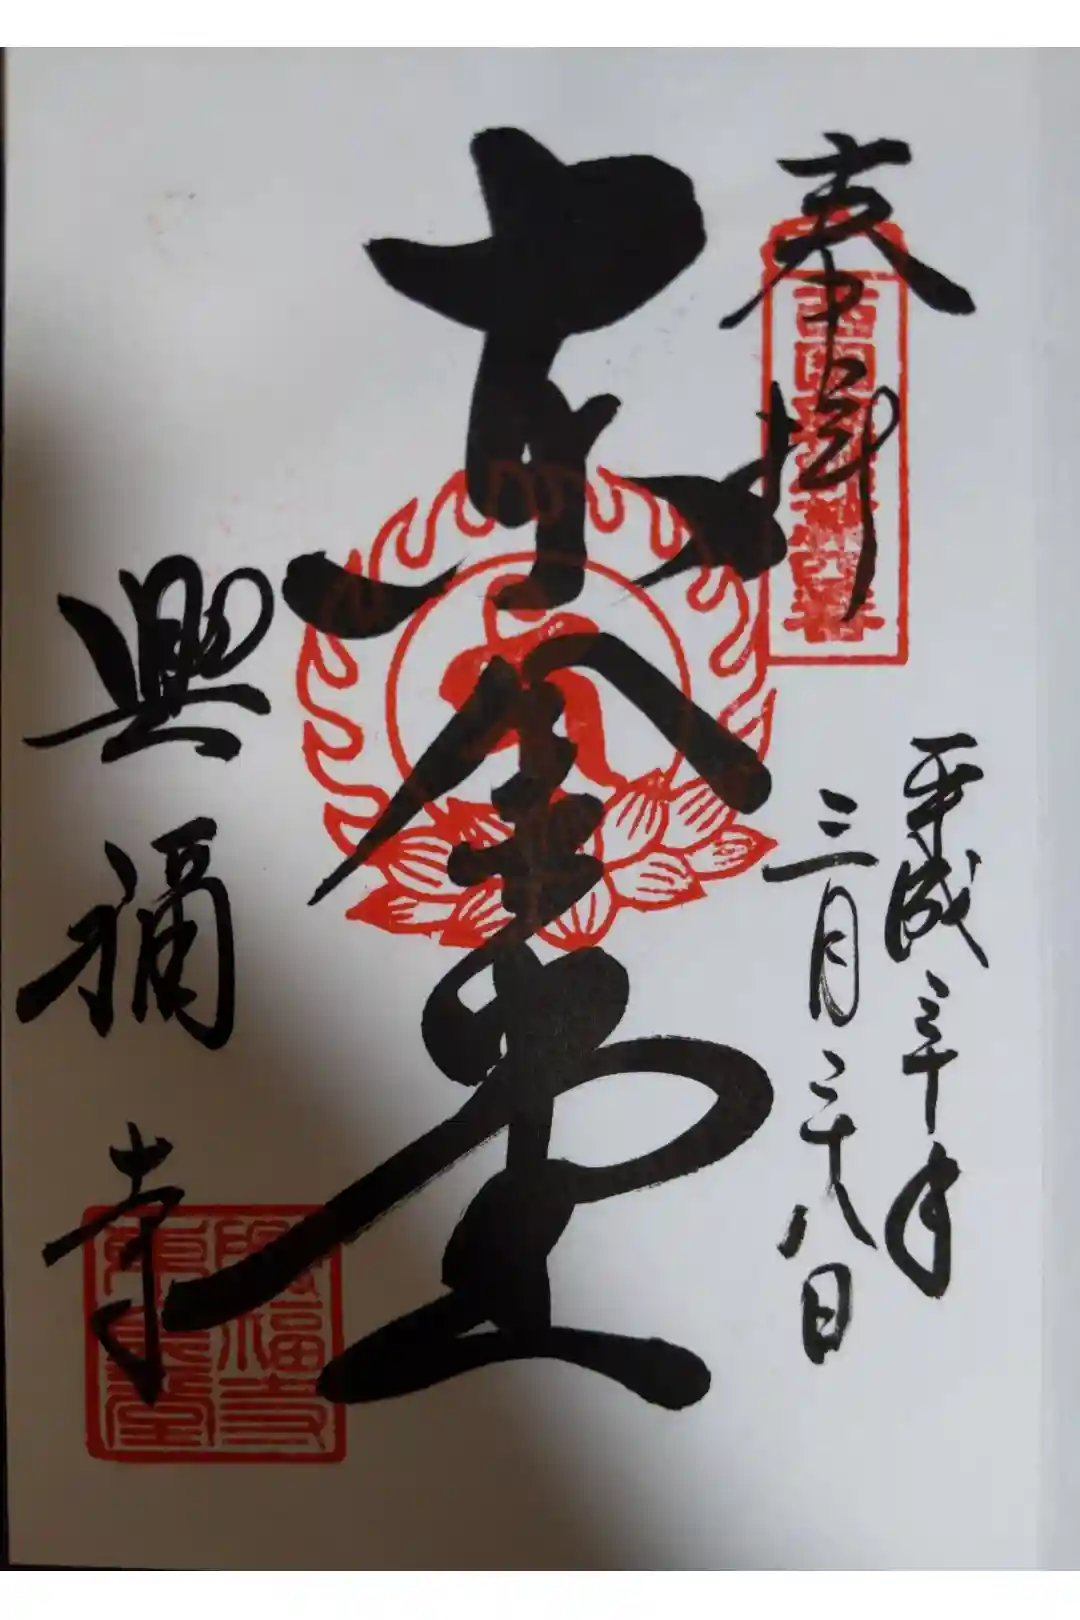 奉拝
平成三十年
三月二十八日
東金堂
興福寺
興福寺
東金堂